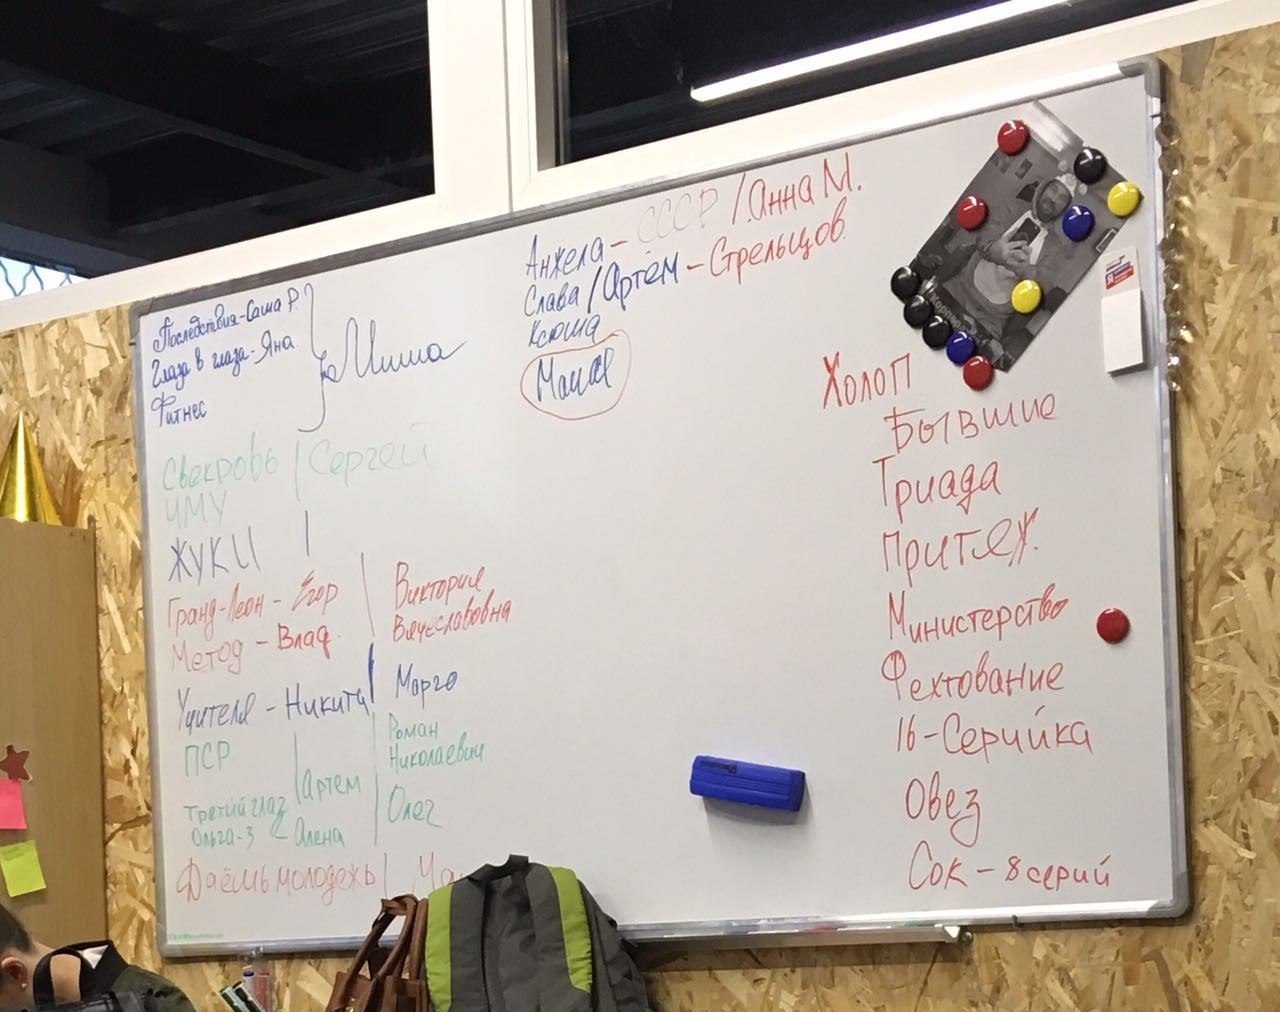 Последствия-Саша Р.
Глаза в глаза-Яна
Фитнес
Миша
Свекровь | Сергей
ЧМУ
ЖУКИ |
Гранд-Леон - Егор
Метод - Влад.
Виктория
Вячеславовна
Учителя - Никита
Марго
ПСР
Артем
Роман
Николаевич
Третий глаз
Ольга-3
Алена
Олег
Даёшь молодежь |
Анжела - СССР / Анна М.
Слава / Артём - Стрельцов.
Ксюша
Холоп
Бывшие
Триада
Притяж.
Министерство
Фехтование
16-Серийка
Овез
Сок - 8 серий